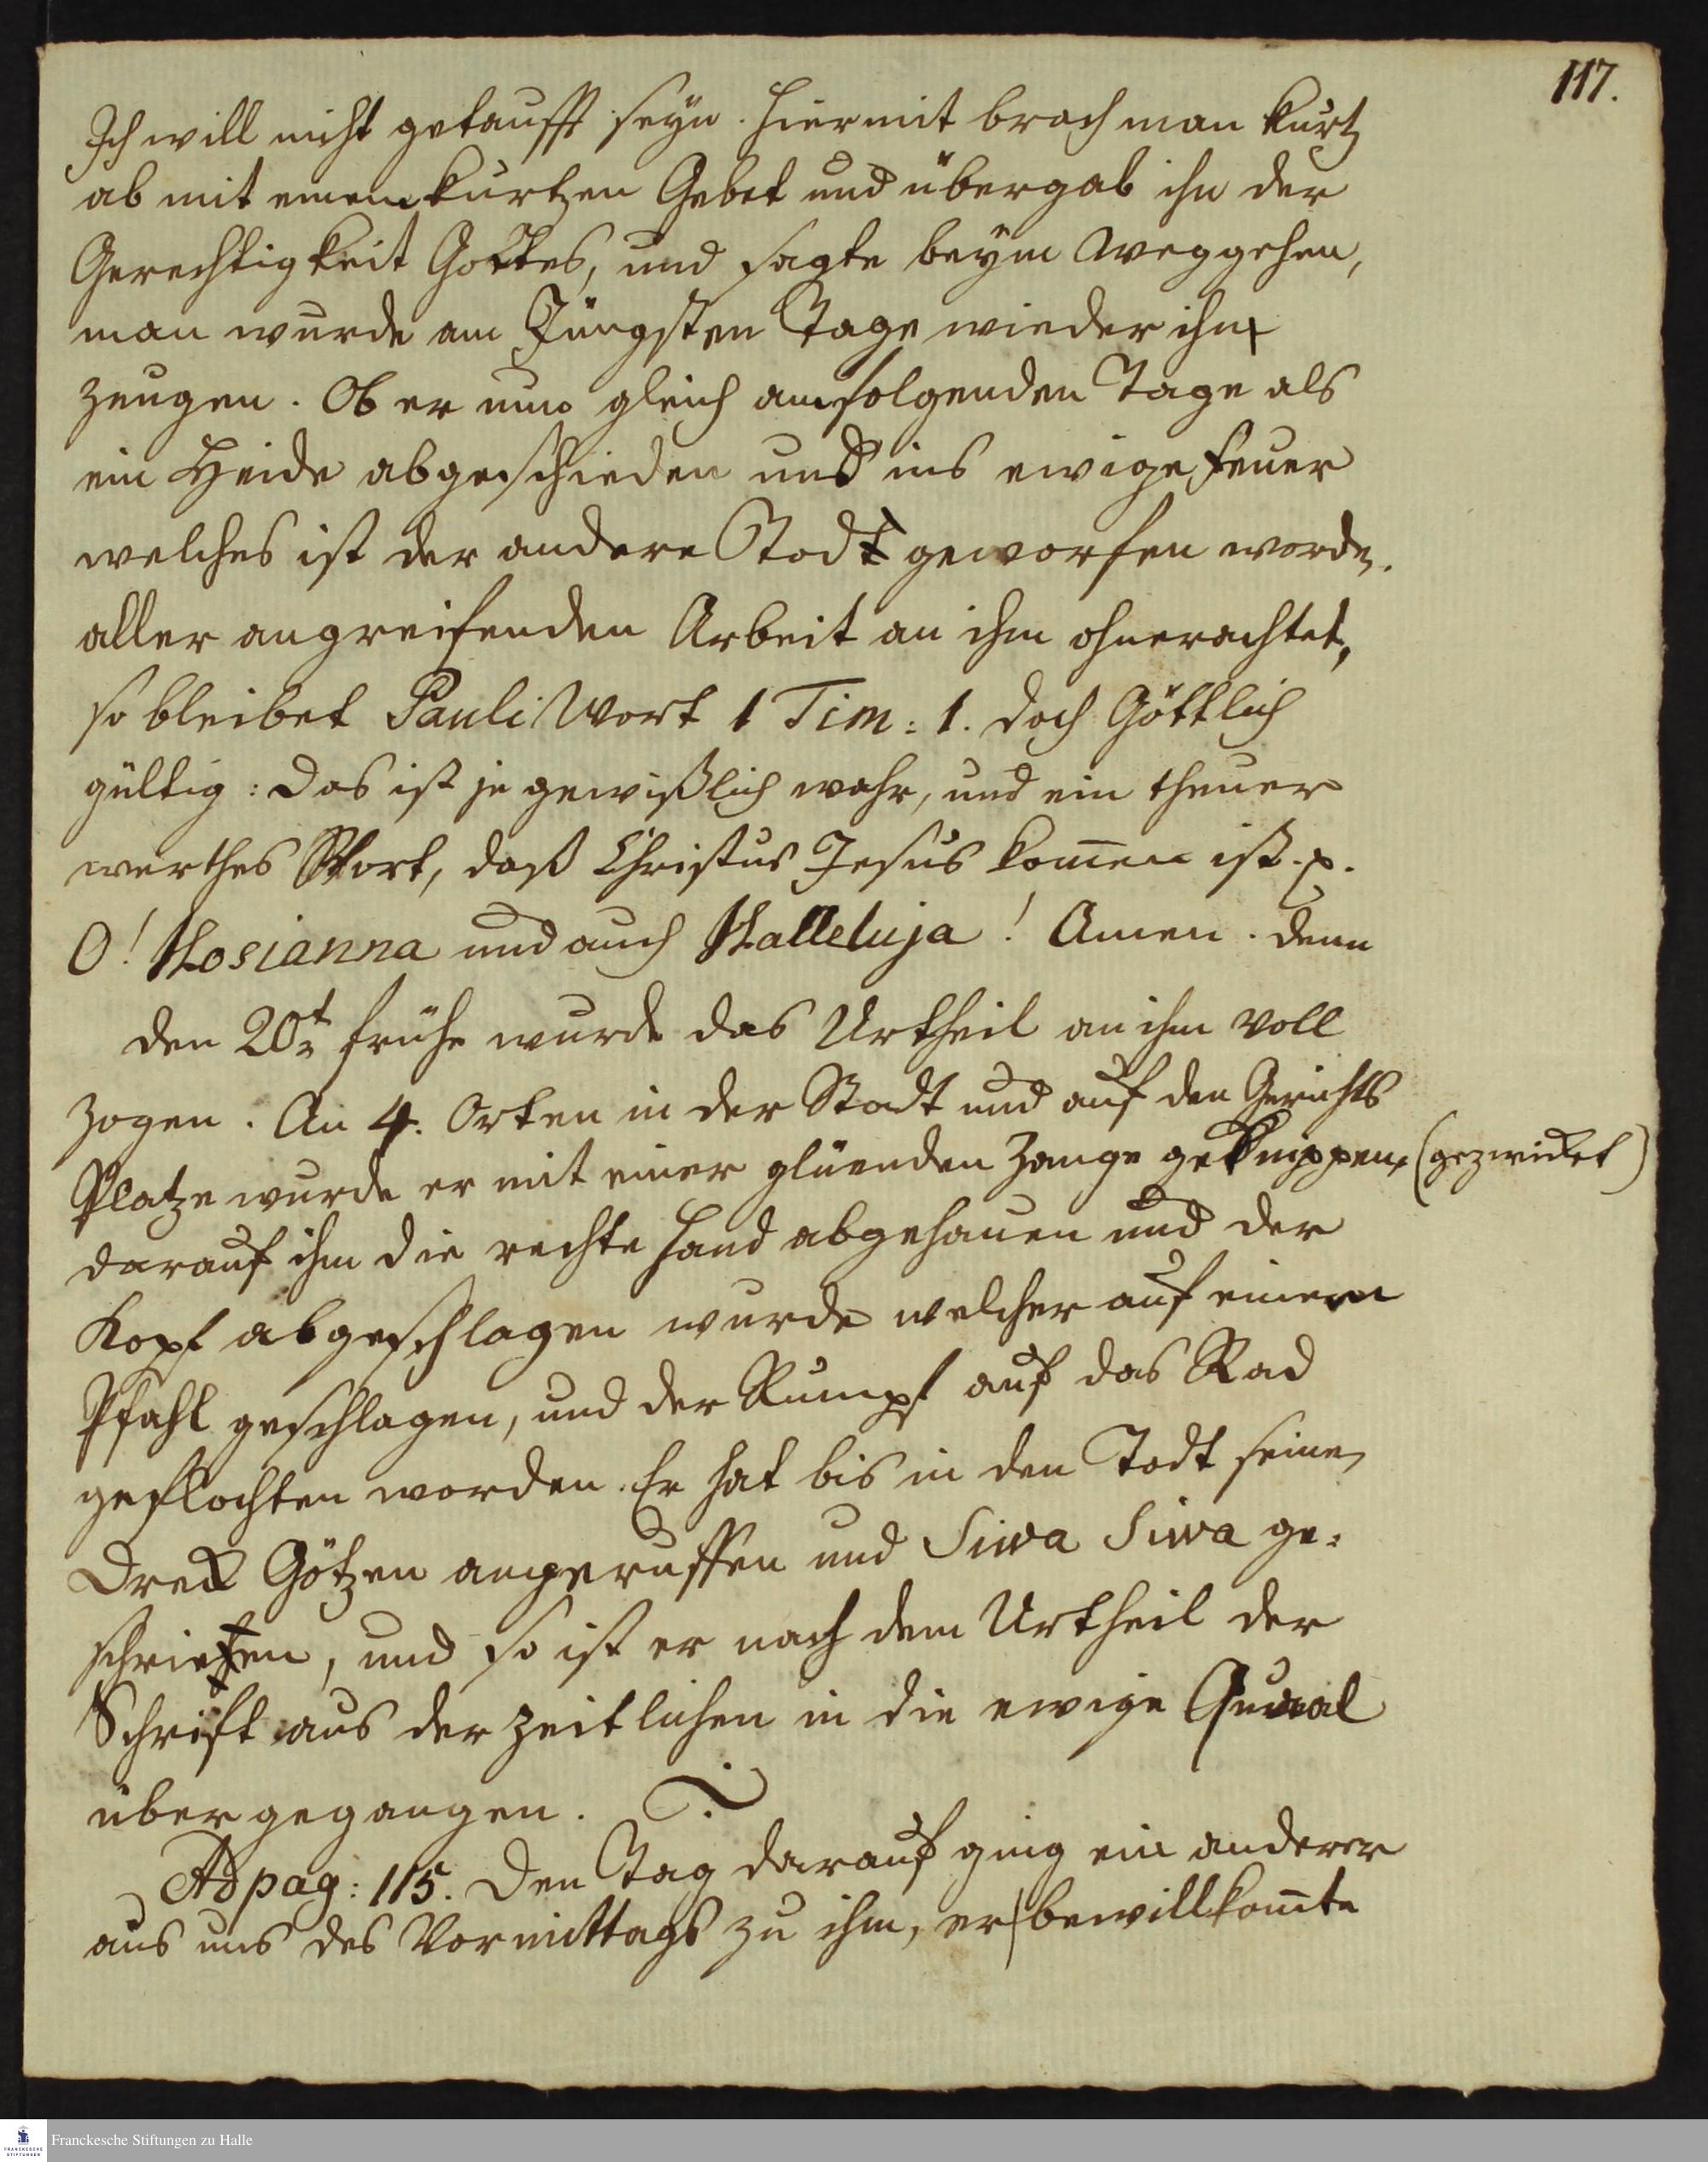 117.
Ich will nicht getaufft seyn. Hiermit brach man kurtz
ab mit einem kurtzen Gebet und übergab ihn der
Gerechtigkeit Gottes, und sagte beym Weggehen,
man wurde am Jüngsten Tage wieder ihn
zeugen. Ob er nun gleich am folgenden Tage als
ein Heide abgeschieden und ins ewige Feuer
welches ist der andere Todt geworfen worden.
aller angreifenden Arbeit an ihm ohnerachtet,
so bleibet Pauli Wort 1 Tim: 1. doch Göttlich
gültig: Das ist je gewißlich wahr, und ein theuer
werthes Wort, daß Christus Jesus kom̅en ist. p.
O! Hosianna und auch Halleluja! Amen. denn
den 20t frühe wurde das Urtheil an ihm voll
zogen. An 4. Orten in der Stadt und auf den Gerichts
Platze wurde er mit einer glüenden Zange geknippen, (gezwicket)
darauf ihm die rechte Hand abgehauen und der
Kopf abgeschlagen wurde welcher auf einem
Pfahl geschlagen, und der Rumpf auf das Rad
geflochten worden. Er hat bis in den Todt seine
Dreck Götzen angeruffen und Siwa Siwa ge-
schrieen, und so ist er nach dem Urtheil der
Schrift aus der zeitlichen in die ewige Quaal
übergegangen.
Ad pag: 115. Den Tag darauf ging ein anderer
aus uns des Vormittags zu ihm, er bewillkom̅te
Franckesche Stiftungen zu Halle
FRANCKESCHE
STIFTUNGEN